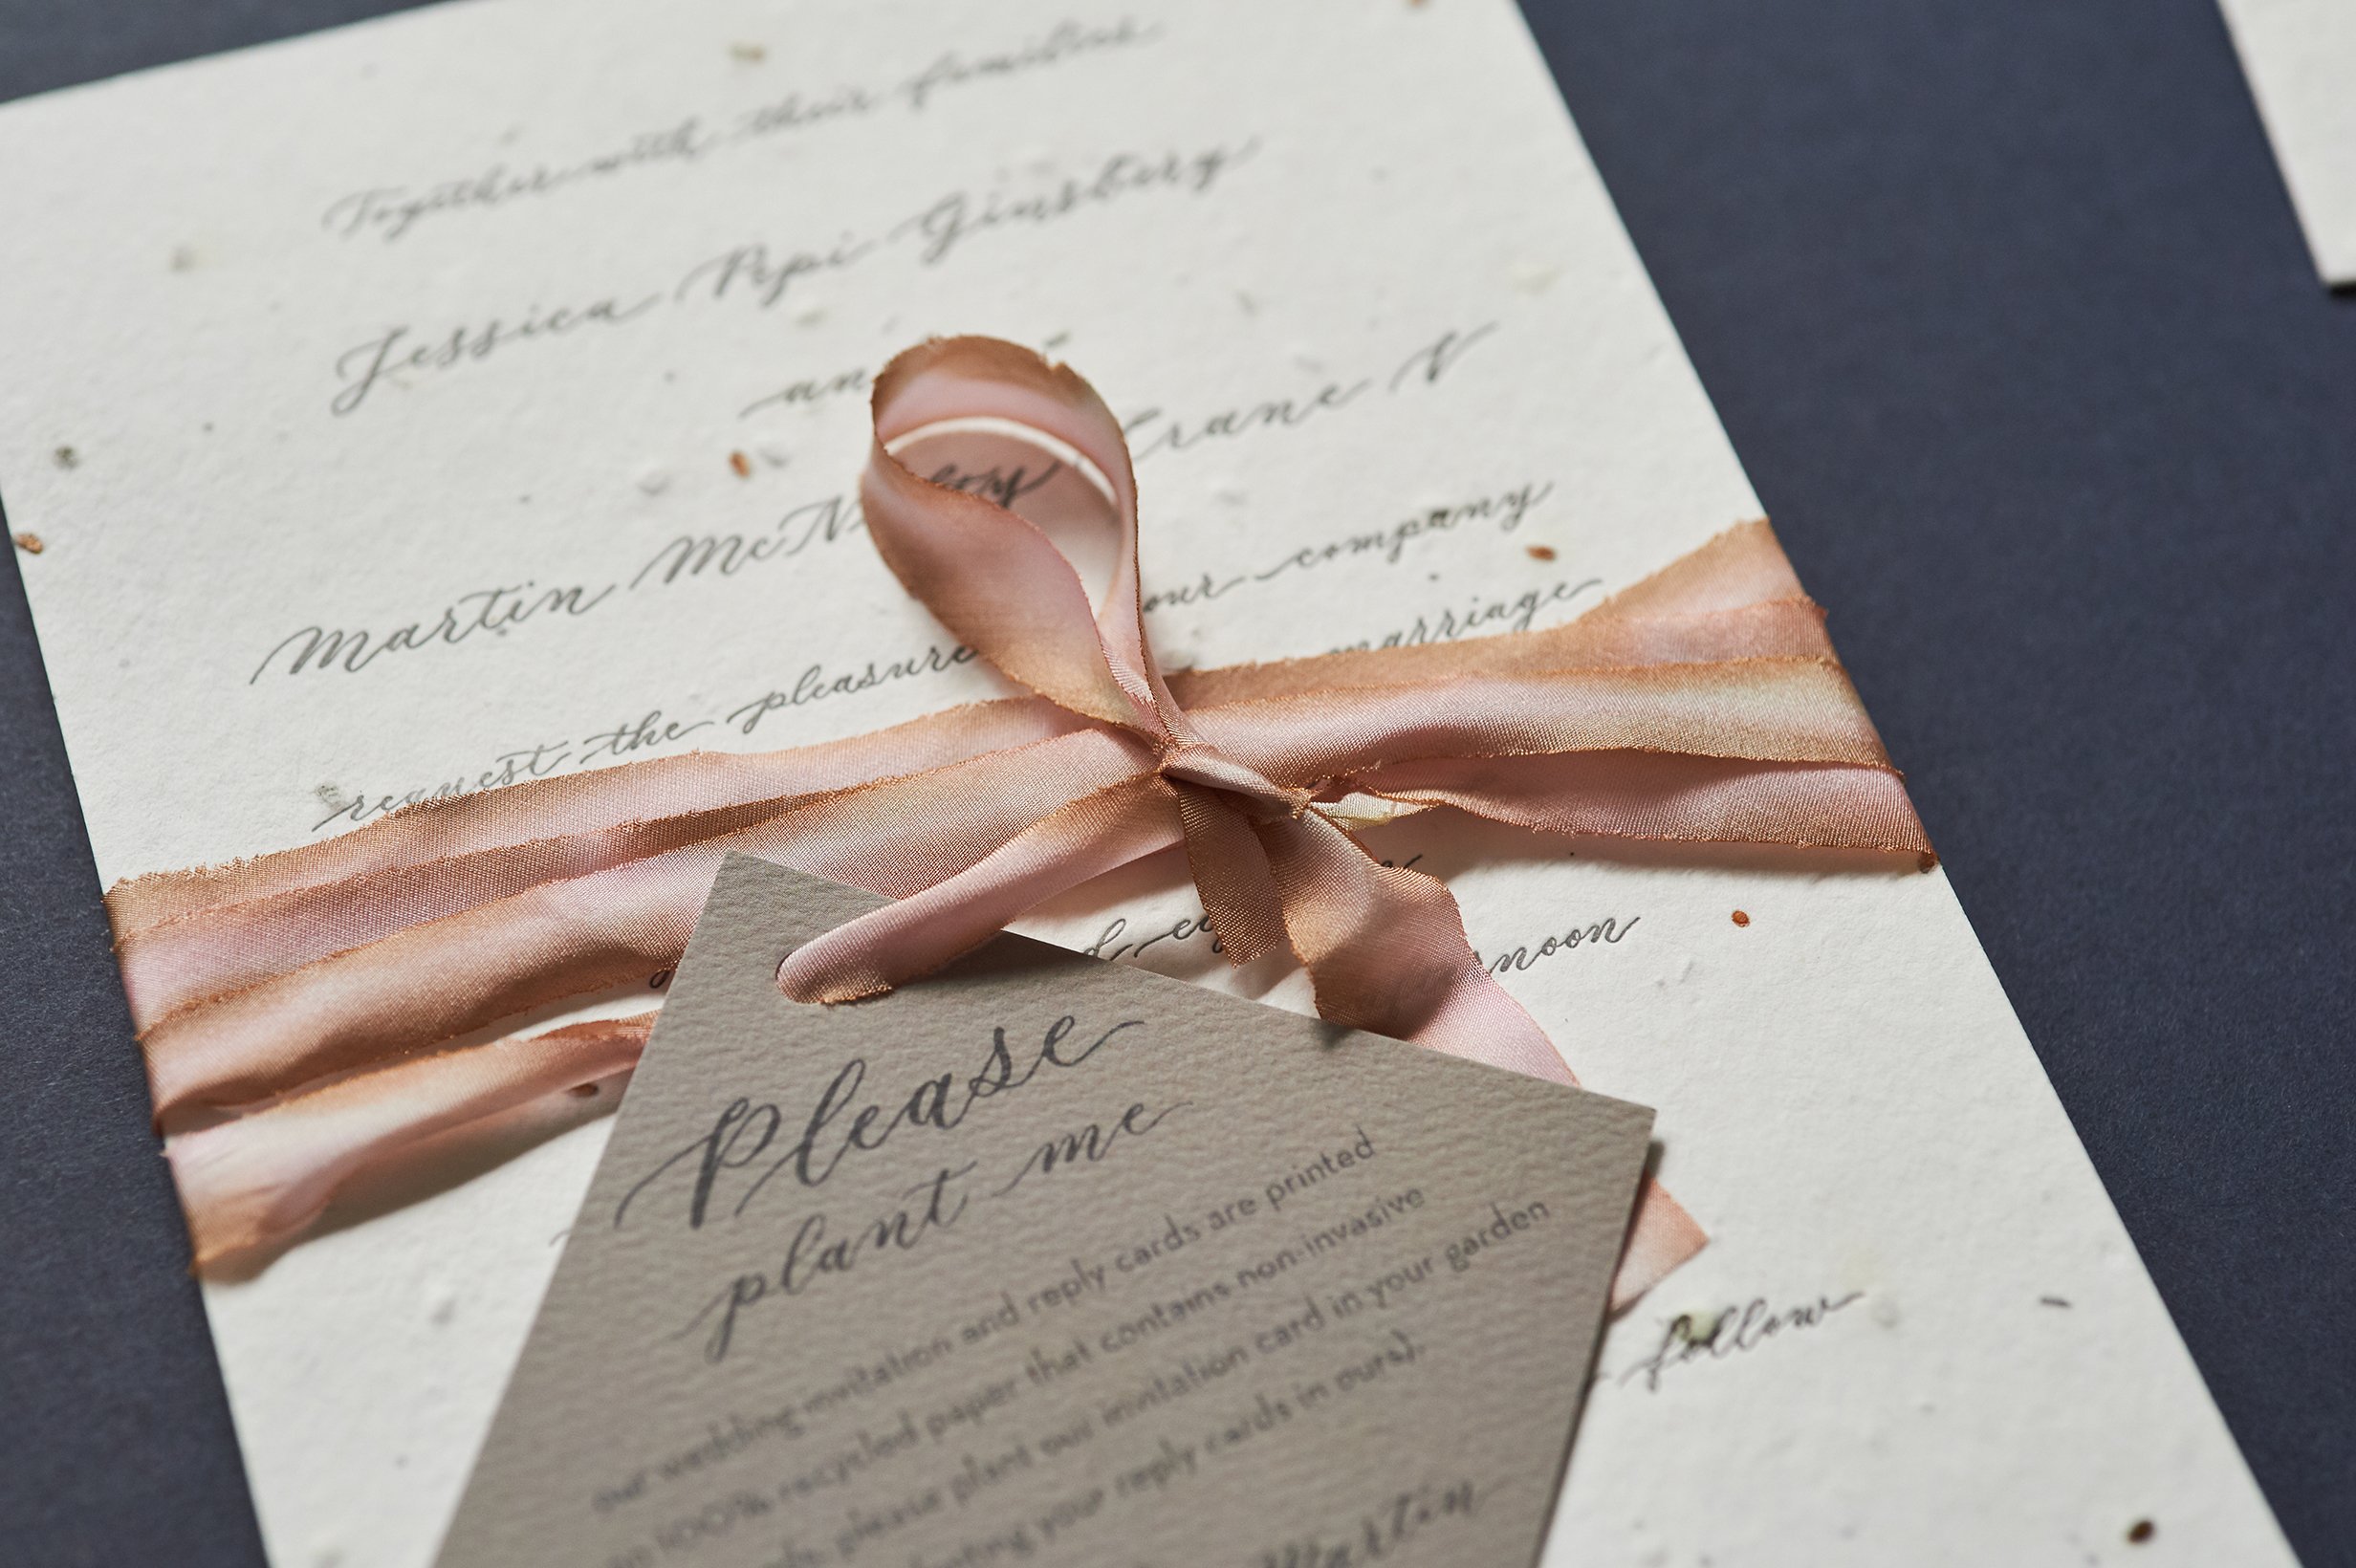 Together with their families
Jessica Pepi Ginsberg
and
Martin McN loy Crane V
request the pleasure our company
marriage
noon
follow
Please
plant me
our wedding invitation and reply cards are printed
on 100% recycled paper that contains non-invasive
please plant our invitation card in your garden
your reply cards in ours).
Martin